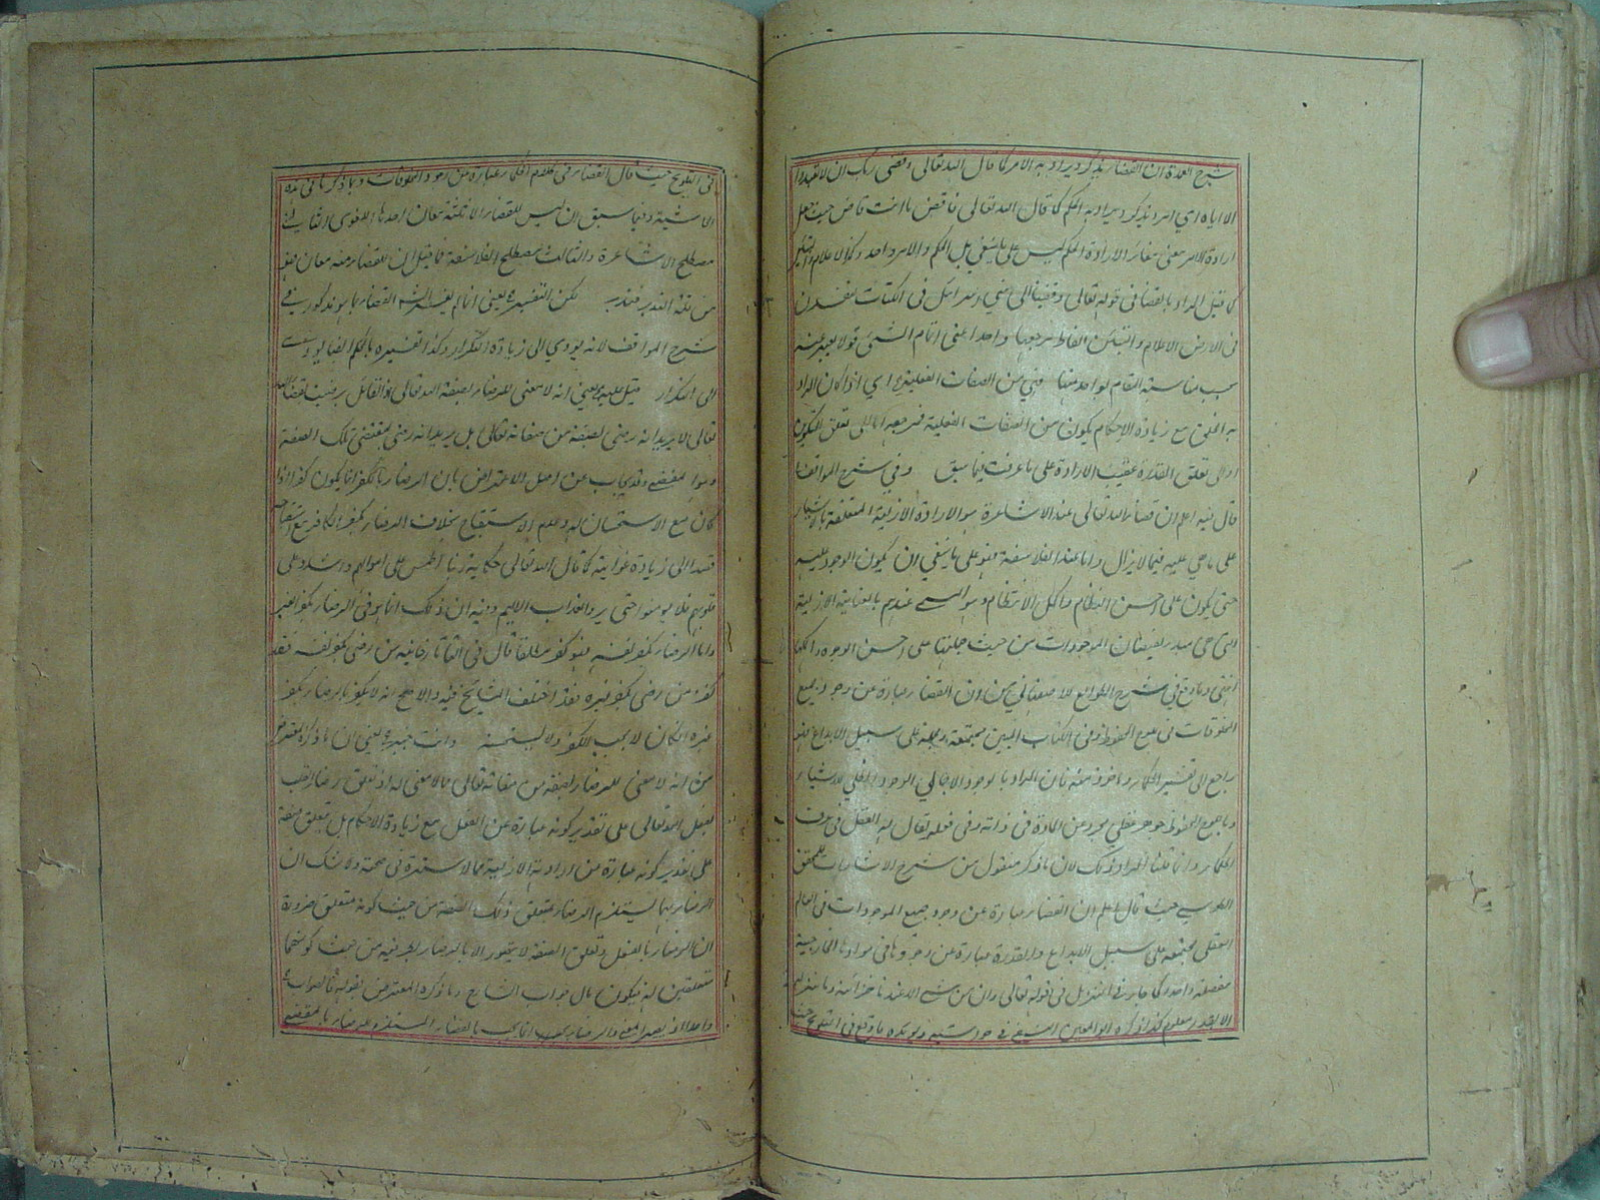 شرح العمدة ان القضاء يذكر ويراد به الامر كما قال الله تعالى وقضى ربك ان لا تعبدوا
الا اياه اي امر ويذكر ويراد به الحكم كما قال الله تعالى فاقض ما انت قاض حيث جعل
ارادة الامر معنى مغائر الارادة الحكم ليس على ما ينبغي بل الحكم والامر واحد وكذا الاعلام
كما قيل المراد بالقضاء في قوله تعالى وقضينا الى بني اسرائيل في الكتاب لتفسدن
في الارض الاعلام والتبيين الفاظ مرجعها واحد اعني اتمام الشئ قولا يعبر عنه
بحسب مناسبة المقام لواحد منها فهي من الصفات الفعلية اي اذا كان المراد
به الخلق مع زيادة الاحكام يكون من الصفات الفعلية فمرجعه الى تعلق التكوين
او الى تعلق القدرة عقيب الارادة على ما عرفت فيما سبق وفي شرح المواقف
قال فيه اعلم ان قضاء الله تعالى عند الاشاعرة هو الارادة الازلية المتعلقة بالاشياء
على ما هي عليه فيما لا يزال واما عند الفلاسفة فهو علمه بما ينبغي ان يكون الوجود عليه
حتى يكون على احسن النظام واكمل الانتظام وهو المسمى عندهم بالعناية الازلية
التي هي مبدء لفيضان الموجودات من حيث جملتها على احسن الوجوه واكملها
انتهى وما وقع في شرح الطوالع للاصفهاني من ان القضاء عبارة عن وجود جميع
المخلوقات في اللوح المحفوظ وفي الكتاب المبين مجتمعة ومجملة على سبيل الابداع فهو
راجع الى تفسير الحكماء وماخوذ منه فان المراد بالوجود الاجمالي الوجود العقلي للاشياء
وباللوح المحفوظ جوهر عقلي مجرد عن المادة في ذاته وفي فعله يقال له العقل في عرف
الحكماء وانما قلنا المراد ذلك لان ما ذكر منقول من شرح الاشارات للمحقق
الطوسي حيث قال اعلم ان القضاء عبارة عن وجود جميع الموجودات في العالم
العقلي مجتمعة على سبيل الابداع والقدر عبارة عن وجودها في موادها الخارجية
مفصلة واحدا كما جاء في التنزيل في قوله تعالى وان من شئ الا عندنا خزائنه وما ننزله
الا بقدر معلوم كذا ذكره في حواشيه ويؤيده ما وقع في التلويح حيث
في التلويح حيث قال القضاء في كلام الحكماء عبارة عن وجود المخلوقات وبما ذكرنا في هذه
الحاشية وفيما سبق ان ليس للقضاء الا ثلثة معان احدها اللغوى الثاني في
مصطلح الاشاعرة والثالث مصطلح الفلاسفة فما قيل ان للقضاء معان
من قلة التدبر فتدبر لكن التفسير يعني انما لم يفسر الشارح القضاء بما هو مذكور في
شرح المواقف لانه يؤدي الى زيادة التكرار وكذا تفسيره بالحكم ايضا يؤدي
الى التكرار قيل عليه يعني انه لا معنى للرضاء بصفة الله تعالى اذ القائل رضيت بقضاء الله
تعالى لا يريد انه رضي بصفة من صفاته تعالى بل يريد انه رضي بمقتضى تلك الصفة
وهو المقضي وقد يجاب عن اصل الاعتراض بان الرضاء بالكفر انما يكون كفرا اذا
كان مع الاستحسان له وعدم الاستقباح بخلاف الرضاء بكفر الكافر مع استقباحه
قصدا الى زيادة عذابه كما قال الله تعالى حكاية ربنا اطمس على اموالهم واشدد على
قلوبهم فلا يؤمنوا حتى يروا العذاب الاليم وفيه ان ذلك انما هو في الرضاء بكفر الغير
واما الرضاء بكفر نفسه فهو كفر مطلقا قال في التاتارخانية من رضي بكفر نفسه فقد
كفر ومن رضي بكفر غيره فقد اختلف المشايخ فيه والاصح انه لا يكفر بالرضاء بكفر
غيره ان كان لا يحب الكفر ولا يستحسنه وانت خبير يعني ان ما ذكره المعترض
من انه لا معنى للرضاء بصفة من صفاته تعالى مما لا معنى له اذ تعلق رضاء القلب
بفعل الله تعالى على تقدير كونه عبارة عن الفعل مع زيادة الاحكام بل بتعلق صفة
على تقدير كونه عبارة عن ارادته الازلية مما لا سترة في صحته ولا شك ان
الرضاء بهما يستلزم الرضاء بمتعلق ذلك الصفة من حيث كونه متعلق ضرورة
ان الرضاء بالفعل وتعلق الصفة لا يتصور الا بالرضاء بطرفيه من حيث كونهما
متعلقين له فيكون مآل جواب الشارح وما ذكره المعترض بقوله فالصواب
واحدا اذ يصير المعنى والرضاء يجب انما يجب بالقضاء المستلزم للرضاء بالمقضي